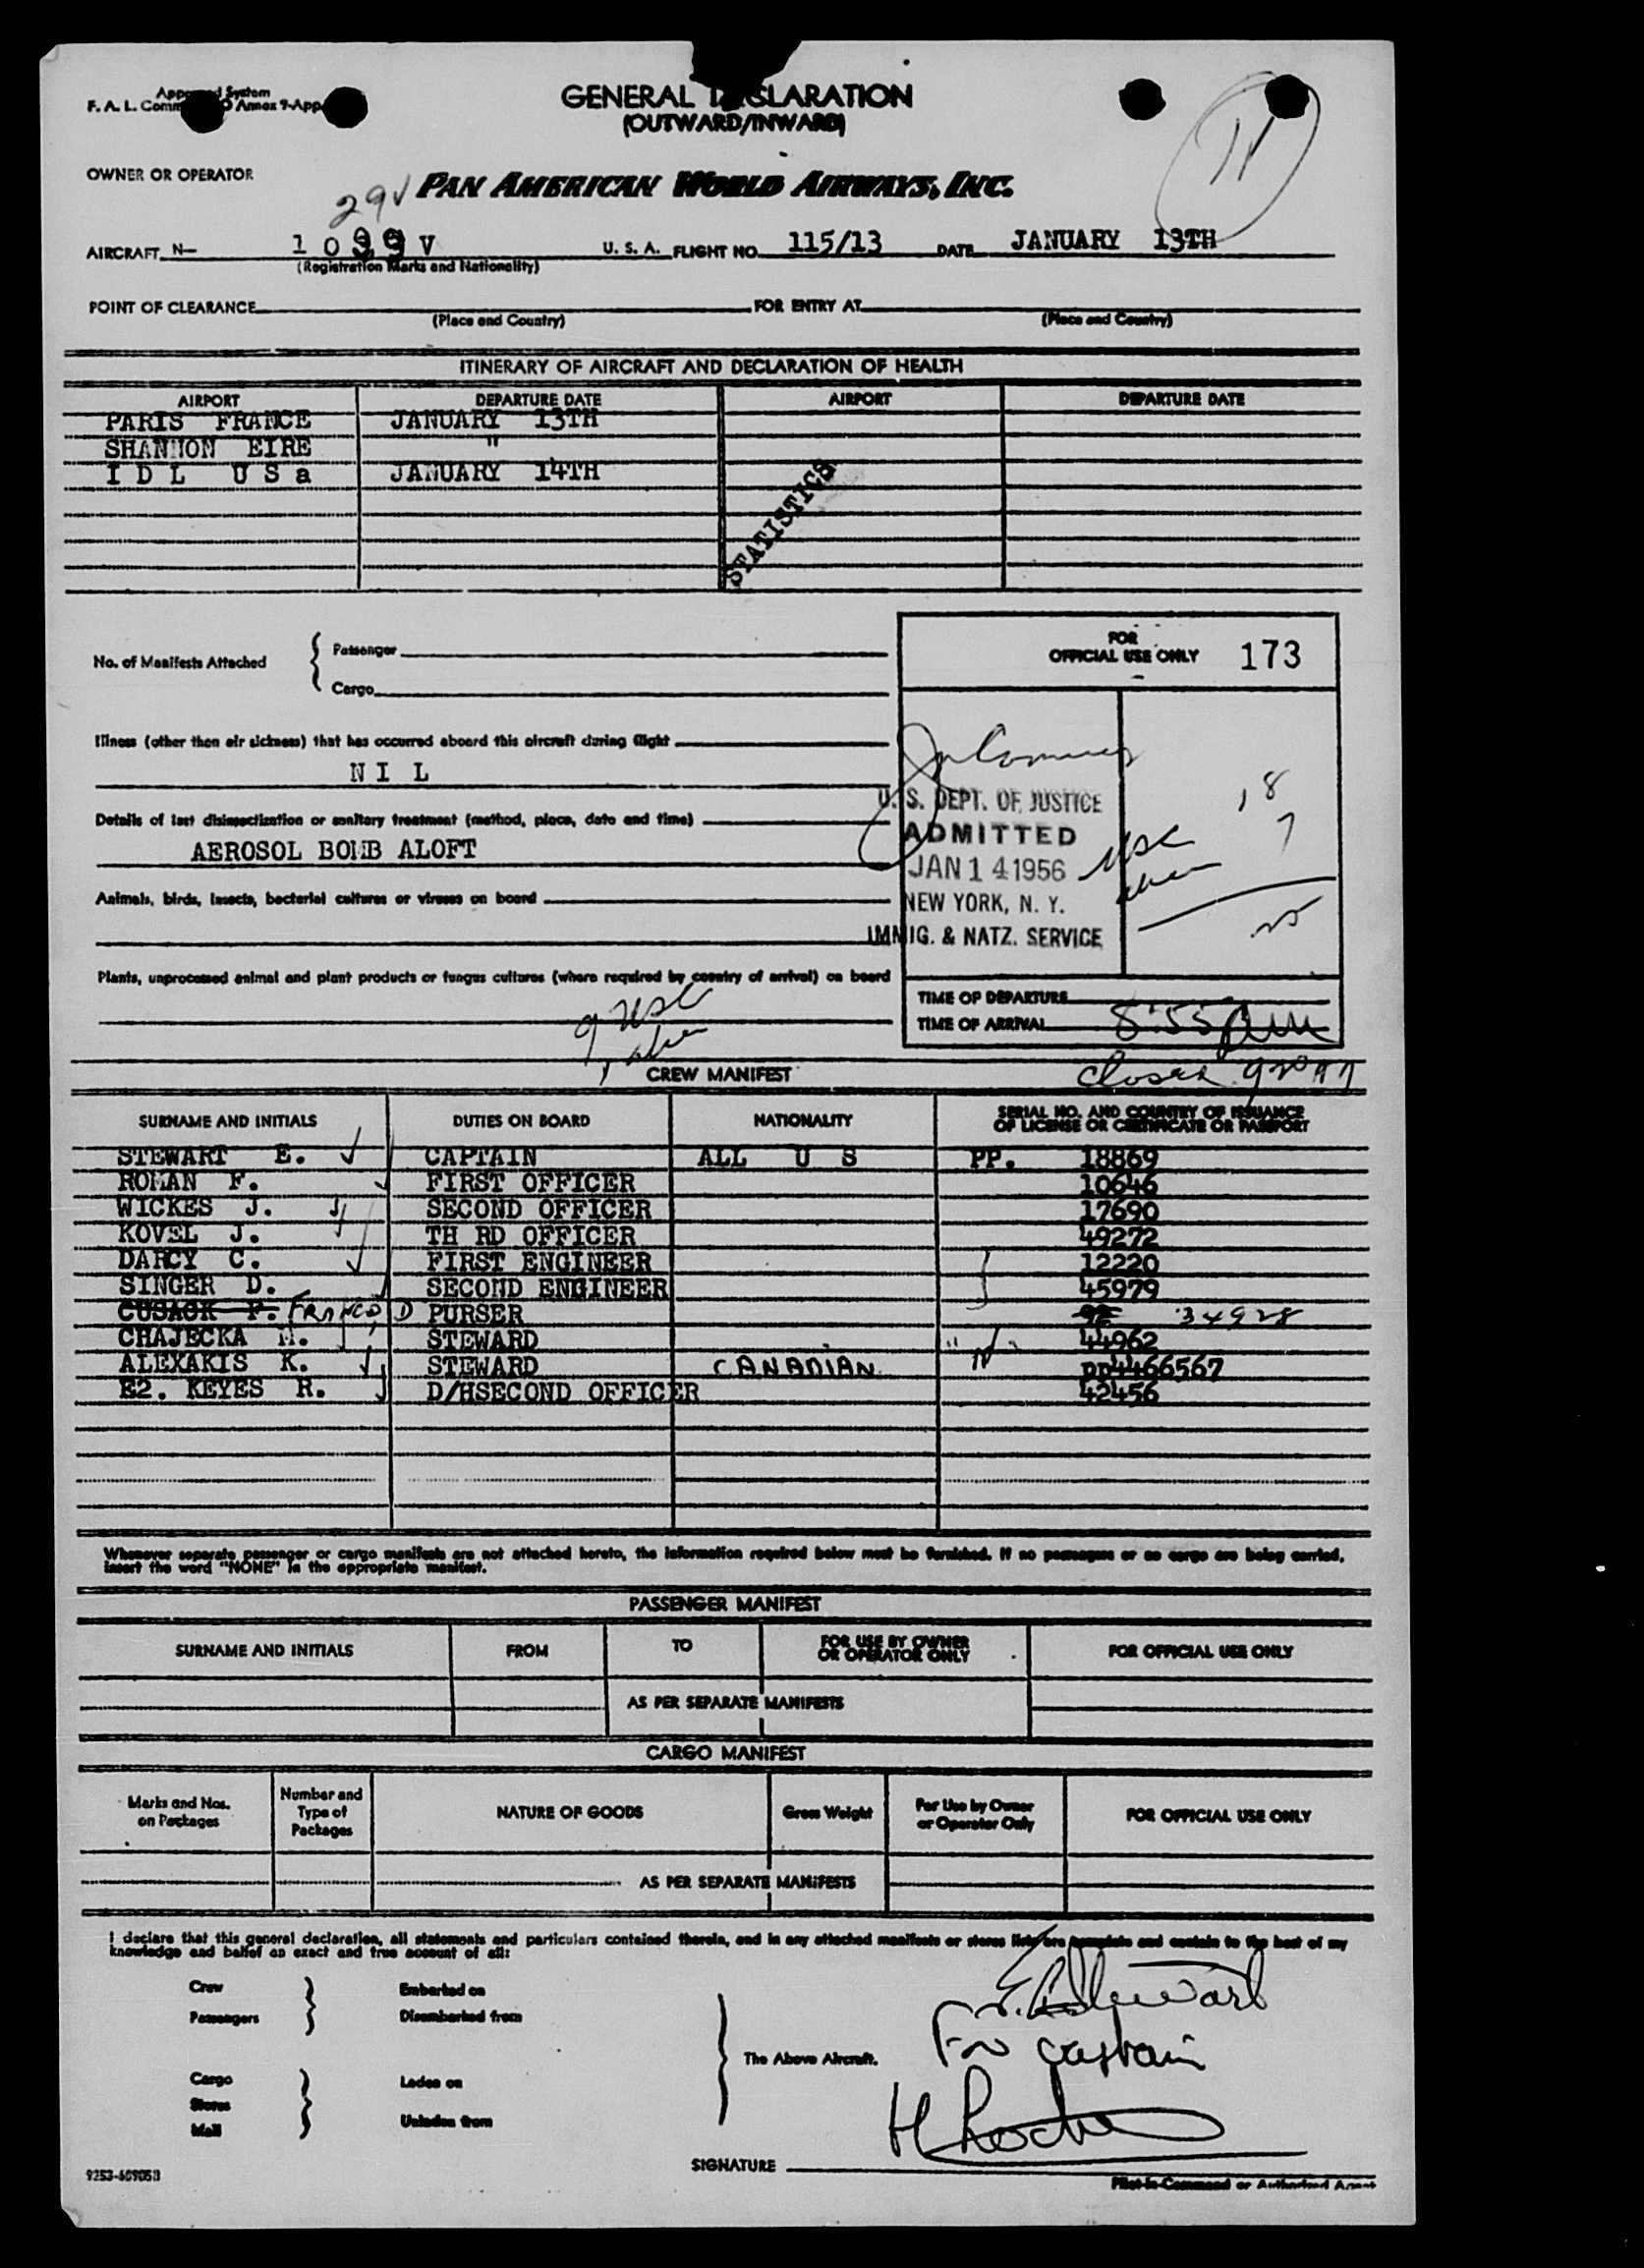 F. A. L.
GENERAL DECLARATION
(OUTWARD/INWARD)
11
OWNER OR OPERATOR
PAN AMERICAN WORLD AIRWAYS, INC.
29V
AIRCRAFT N- 1099V U. S. A. FLIGHT NO. 115/13 DATE JANUARY 13TH
(Registration Marks and Nationality)
POINT OF CLEARANCE FOR ENTRY AT
(Place and Country) (Place and Country)
ITINERARY OF AIRCRAFT AND DECLARATION OF HEALTH
AIRPORT DEPARTURE DATE AIRPORT DEPARTURE DATE
PARIS FRANCE JANUARY 13TH
SHANNON EIRE "
I D L U S a JANUARY 14TH
STATISTICS
FOR
OFFICIAL USE ONLY 173
No. of Manifests Attached { Passenger
Cargo
Illness (other than air sickness) that has occurred aboard this aircraft during flight
N I L
Details of last disinsectization or sanitary treatment (method, place, date and time)
AEROSOL BOMB ALOFT
Animals, birds, insects, bacterial cultures or viruses on board
Plants, unprocessed animal and plant products or fungus cultures (where required by country of arrival) on board
U. S. DEPT. OF JUSTICE
ADMITTED
JAN 14 1956
NEW YORK, N. Y.
IMMIG. & NATZ. SERVICE
USC 18
7
25
TIME OF DEPARTURE
TIME OF ARRIVAL 8:55
9 USC
Closed
CREW MANIFEST
SURNAME AND INITIALS DUTIES ON BOARD NATIONALITY SERIAL NO. AND COUNTRY OF ISSUANCE
OF LICENSE OR CERTIFICATE OR PASSPORT
STEWART E. CAPTAIN ALL U S PP. 18869
ROMAN F. FIRST OFFICER 10646
WICKES J. SECOND OFFICER 17690
KOVEL J. TH RD OFFICER 49272
DARCY C. FIRST ENGINEER 12220
SINGER D. SECOND ENGINEER 45979
CUSACK P. FRANCO, D PURSER 34928
CHAJECKA M. STEWARD 44962
ALEXAKIS K. STEWARD CANADIAN pp4466567
E2. KEYES R. D/HSECOND OFFICER 42456
Whenever separate passenger or cargo manifests are not attached hereto, the information required below must be furnished. If no passengers or no cargo are being carried,
insert the word "NONE" in the appropriate manifest.
PASSENGER MANIFEST
SURNAME AND INITIALS FROM TO FOR USE BY OWNER
OR OPERATOR ONLY FOR OFFICIAL USE ONLY
AS PER SEPARATE MANIFESTS
CARGO MANIFEST
Marks and Nos.
on Packages
Number and
Type of
Packages
NATURE OF GOODS
Gross Weight
For Use by Owner
or Operator Only
FOR OFFICIAL USE ONLY
AS PER SEPARATE MANIFESTS
I declare that this general declaration, all statements and particulars contained therein, and in any attached manifests or stores lists are complete and contain to the best of my
knowledge and belief an exact and true account of all:
Crew
Passengers
Embarked on
Disembarked from
Cargo
Stores
Mail
Laden on
Unladen from
The Above Aircraft.
E. Stewart
For Captain
H Roche
SIGNATURE
Pilot-in-Command or Authorized Agent